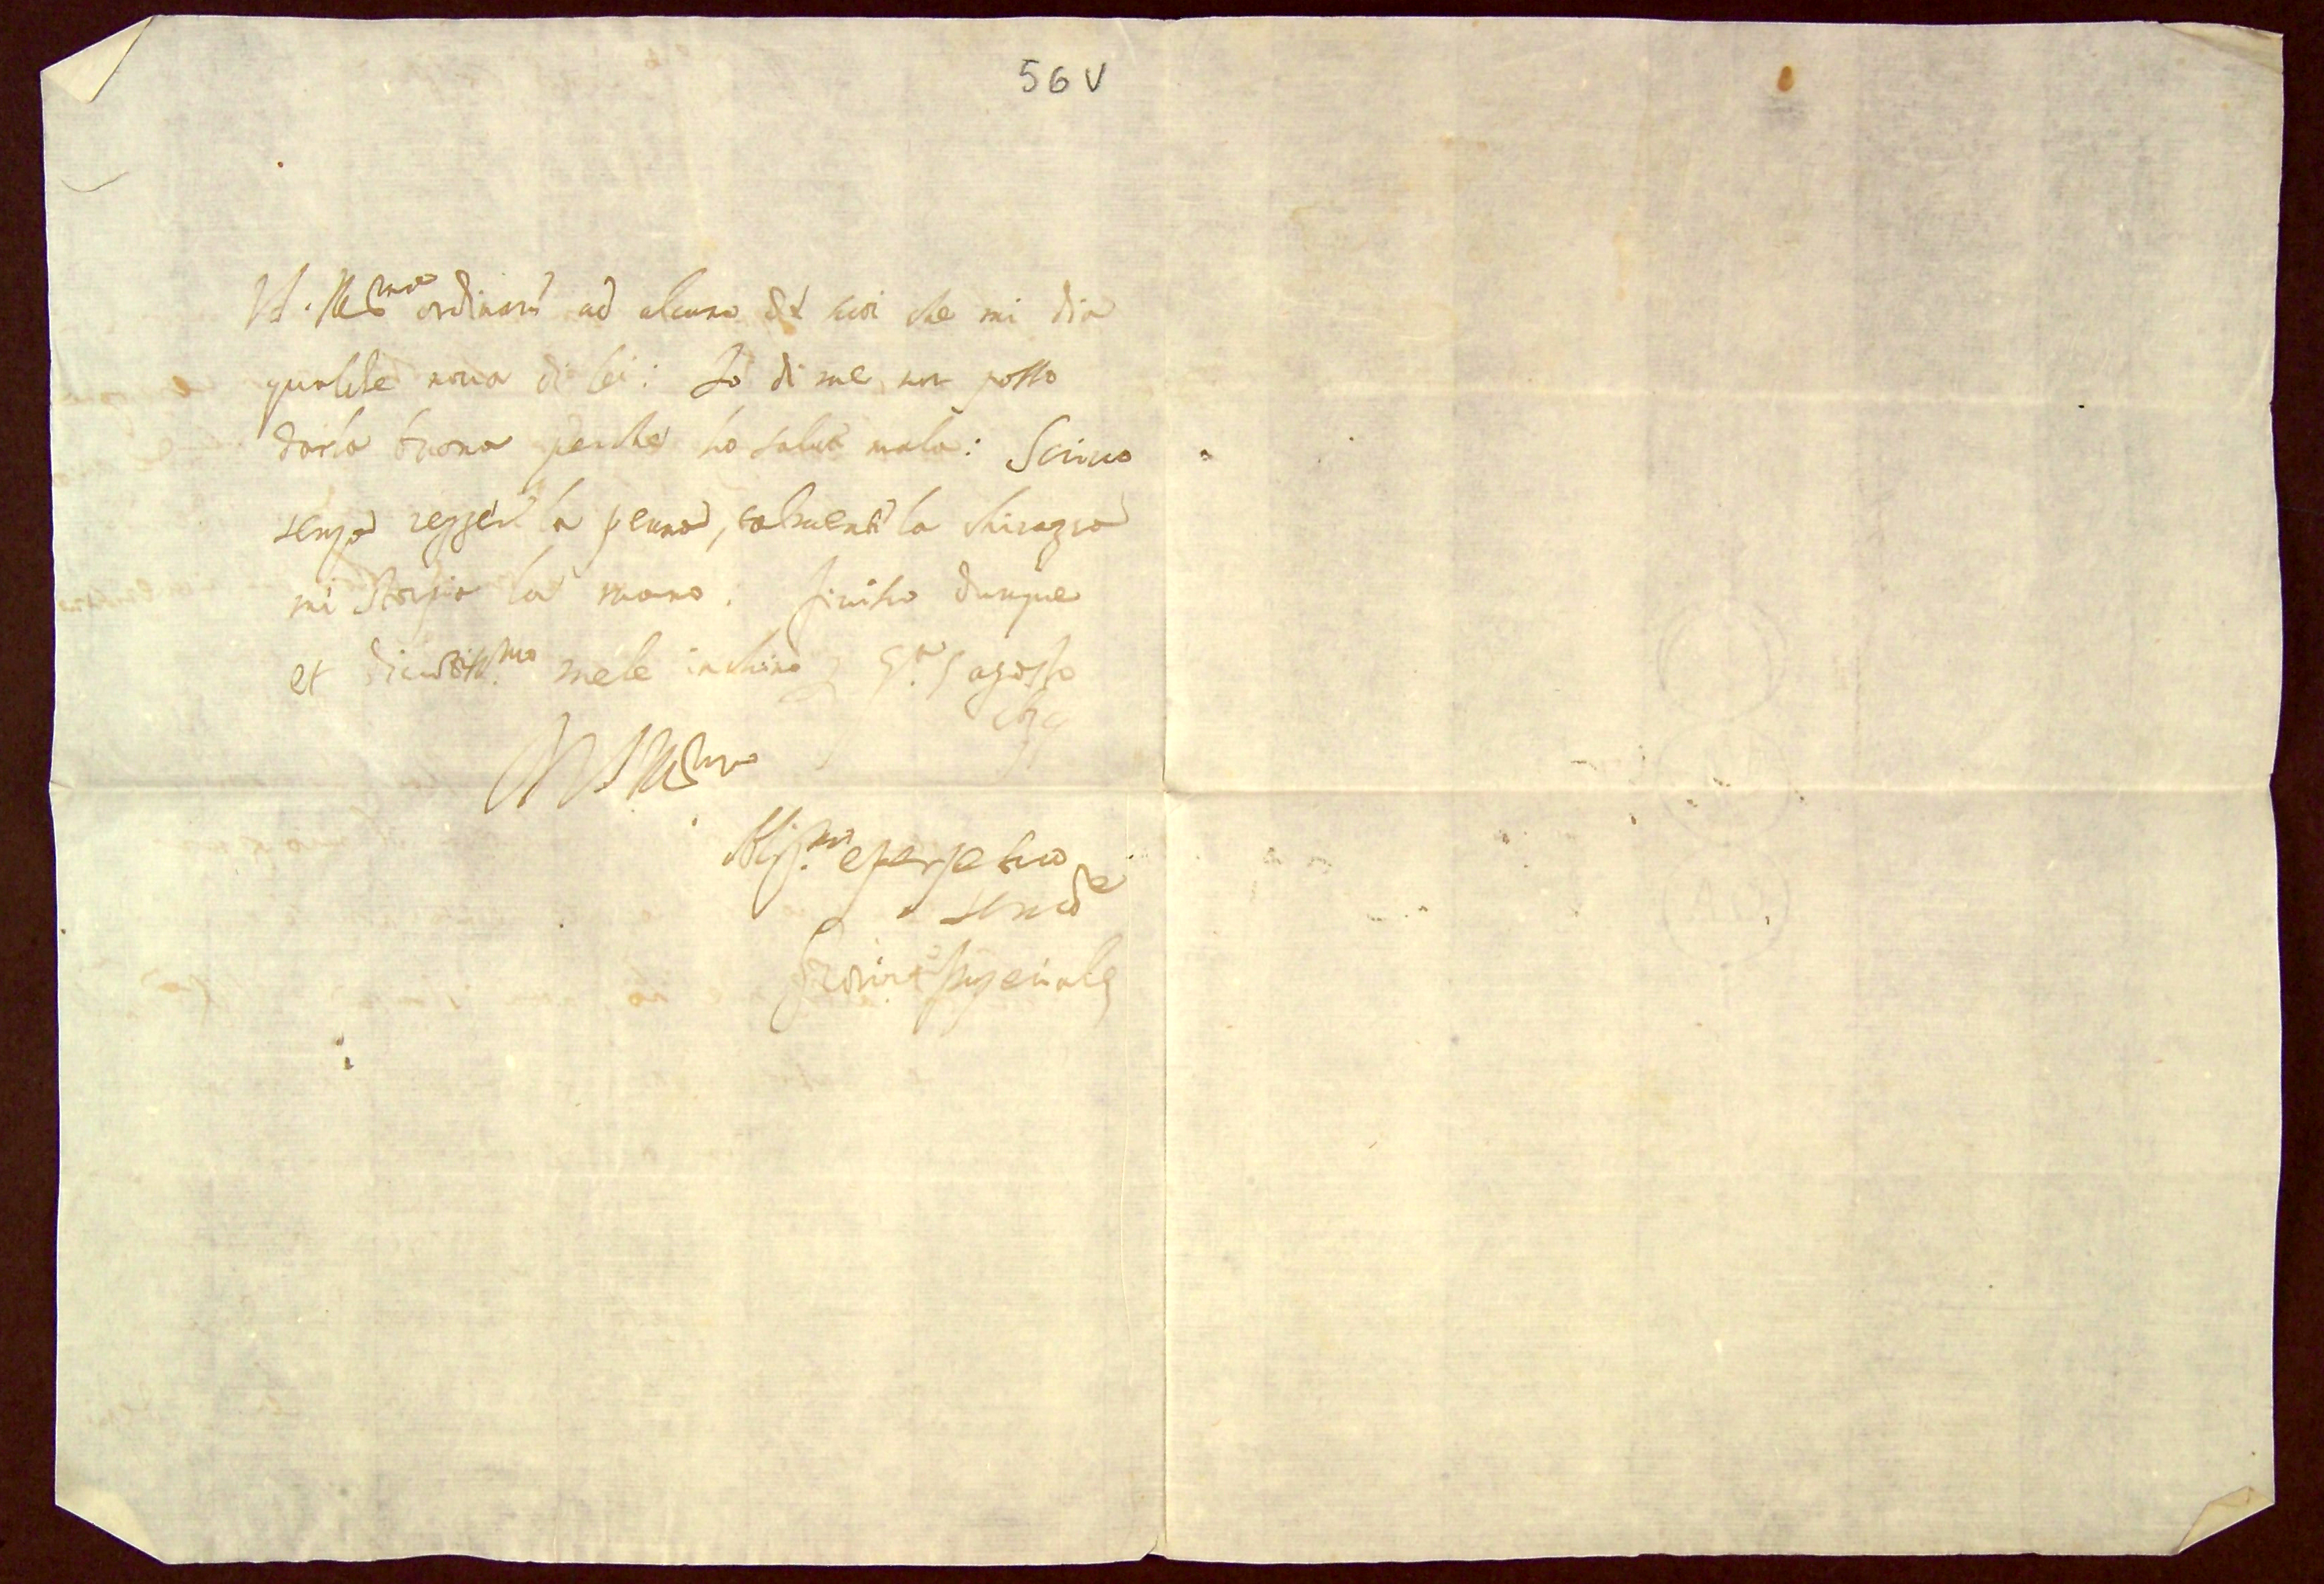 56 V
V.S. Ill.ma ordinare ad alcuno de suoi che mi dia
qualche nova di lei: Io di me non posso
darla buona perche ho salute mala: Scrivo
senza regger la penna, talmente la chiragra
mi storpia la mano. finisco dunque
et divotiss.mo mele inchino 5 agosto
Di V S Ill.ma
Aff.mo e perpetuo
serv.e
Imperiale